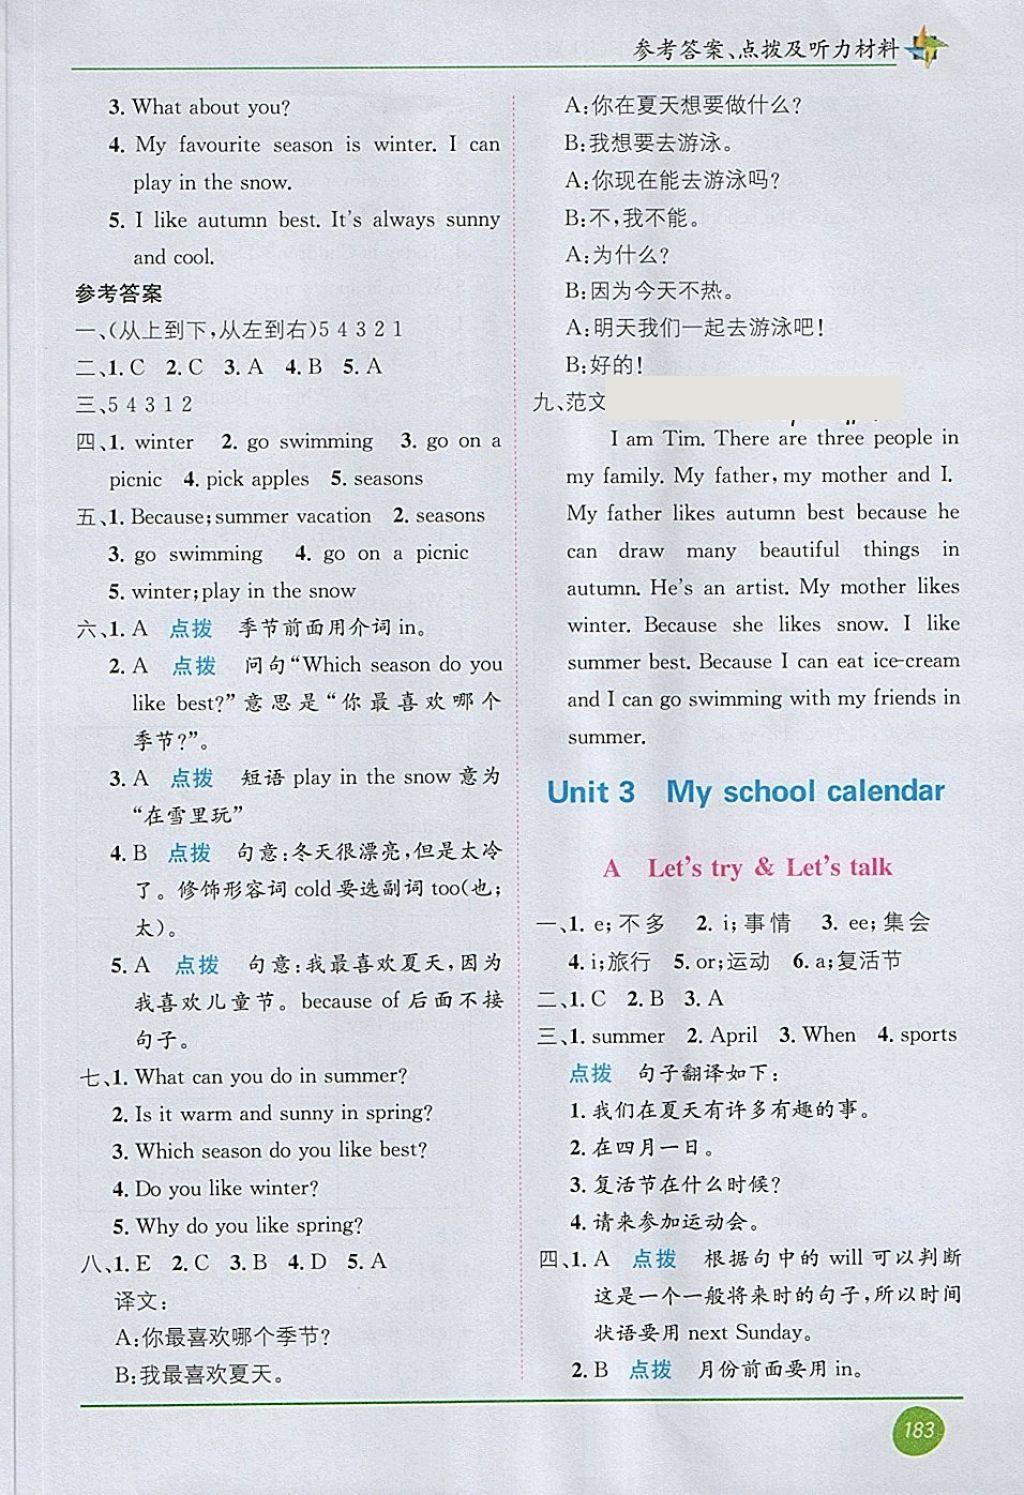 参考答案、点拨及听力材料
3. What about you?
4. My favourite season is winter. I can
play in the snow.
5. I like autumn best. It's always sunny
and cool.
参考答案
一、(从上到下,从左到右)5 4 3 2 1
二、1. C 2. C 3. A 4. B 5. A
三、5 4 3 1 2
四、1. winter 2. go swimming 3. go on a
picnic 4. pick apples 5. seasons
五、1. Because;summer vacation 2. seasons
3. go swimming 4. go on a picnic
5. winter;play in the snow
六、1. A 点拨 季节前面用介词in。
2. A 点拨 问句“Which season do you
like best?”意思是“你最喜欢哪个
季节?”。
3. A 点拨 短语 play in the snow 意为
“在雪里玩”
4. B 点拨 句意:冬天很漂亮,但是太冷
了。修饰形容词 cold 要选副词 too(也;
太)。
5. A 点拨 句意:我最喜欢夏天,因为
我喜欢儿童节。because of 后面不接
句子。
七、1. What can you do in summer?
2. Is it warm and sunny in spring?
3. Which season do you like best?
4. Do you like winter?
5. Why do you like spring?
八、1. E 2. C 3. B 4. D 5. A
译文:
A:你最喜欢哪个季节?
B:我最喜欢夏天。
A:你在夏天想要做什么?
B:我想要去游泳。
A:你现在能去游泳吗?
B:不,我不能。
A:为什么?
B:因为今天不热。
A:明天我们一起去游泳吧!
B:好的!
九、范文
I am Tim. There are three people in
my family. My father, my mother and I.
My father likes autumn best because he
can draw many beautiful things in
autumn. He's an artist. My mother likes
winter. Because she likes snow. I like
summer best. Because I can eat ice-cream
and I can go swimming with my friends in
summer.
Unit 3 My school calendar
A Let's try & Let's talk
一、1. e;不多 2. i;事情 3. ee;集会
4. i;旅行 5. or;运动 6. a;复活节
二、1. C 2. B 3. A
三、1. summer 2. April 3. When 4. sports
点拨 句子翻译如下:
1. 我们在夏天有许多有趣的事。
2. 在四月一日。
3. 复活节在什么时候?
4. 请来参加运动会。
四、1. A 点拨 根据句中的 will 可以判断
这是一个一般将来时的句子,所以时间
状语要用 next Sunday。
2. B 点拨 月份前面要用 in。
183